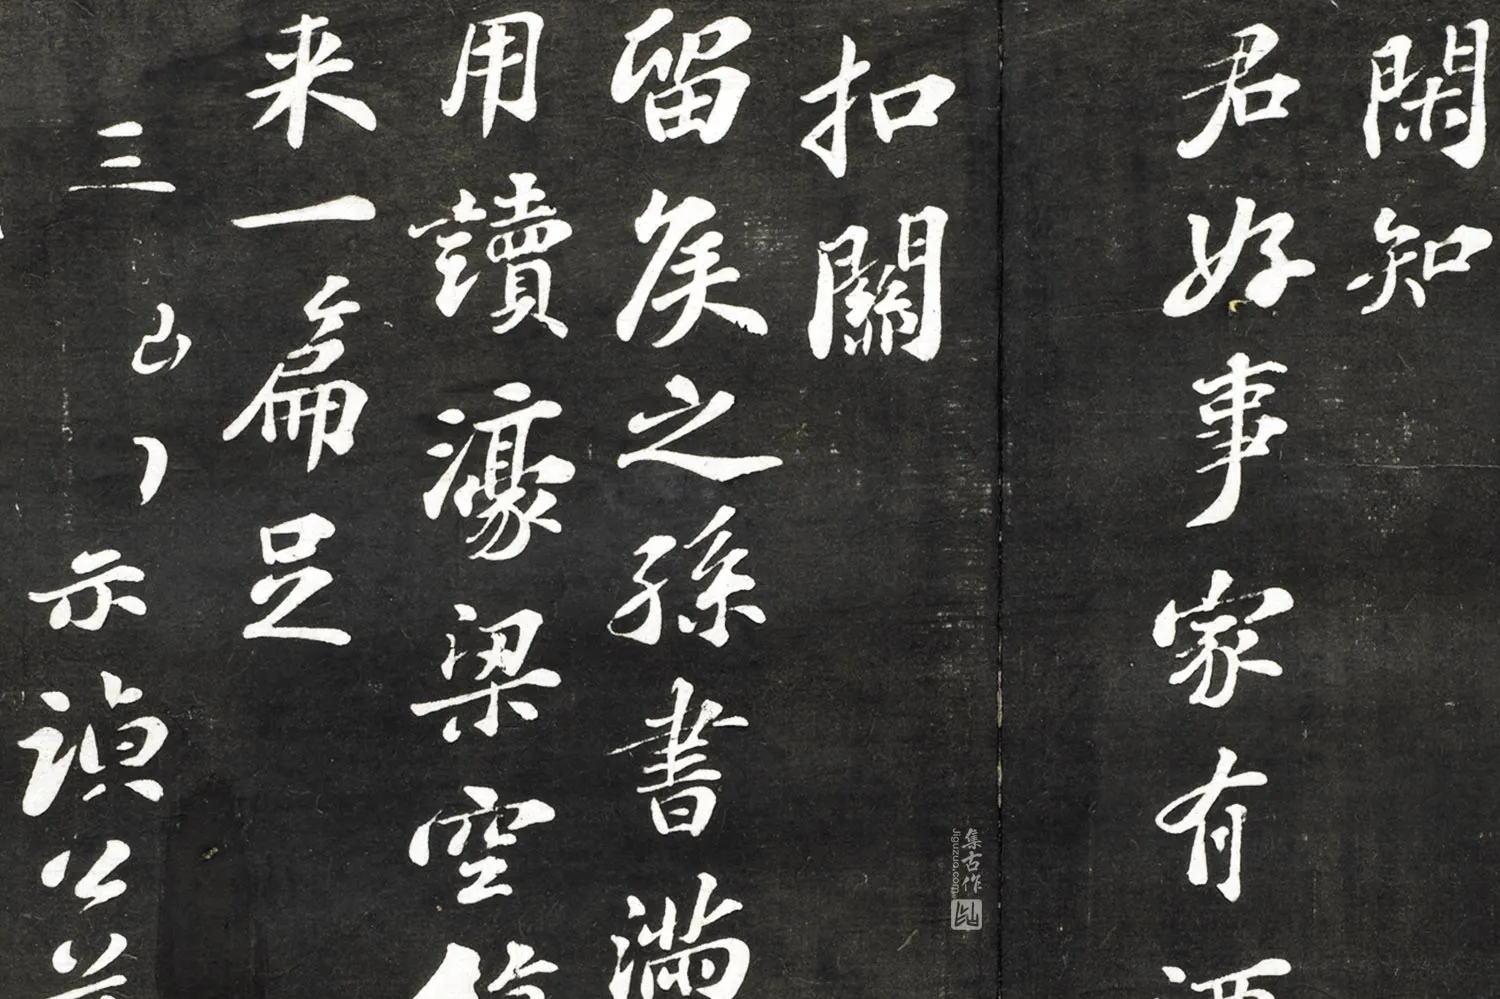 閑知
君好事家有酒
扣關
留矦之孫書滿
用讀濠梁空
来一扁足
三
示禎公
集古作
jiguzuo.com